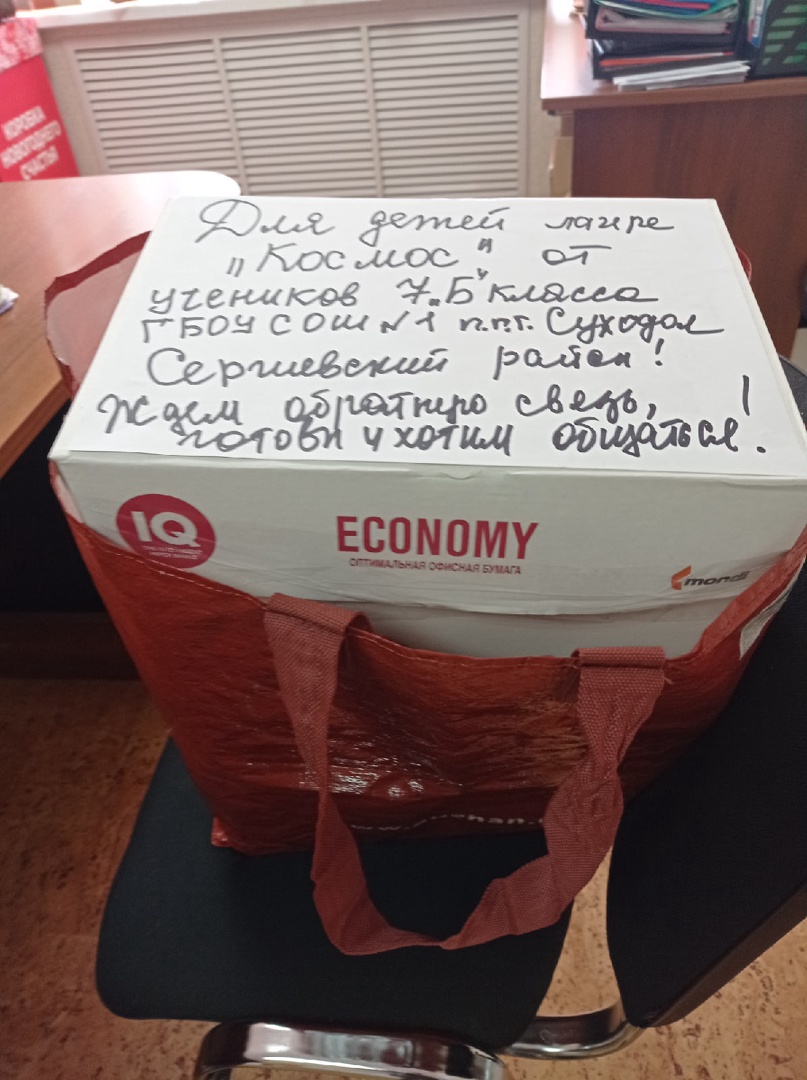 КОРОБКА
НОВОГОДНЕГО
СЧАСТЬЯ
Для детей лагре
„Космос" от
учеников 7„Б" класса
ГБОУ СОШ №1 п.г.т. Суходол
Сергиевский район!
Ждем обратную связь,
готовы и хотим общаться!
IQ
ECONOMY
ОПТИМАЛЬНАЯ ОФИСНАЯ БУМАГА
mondi